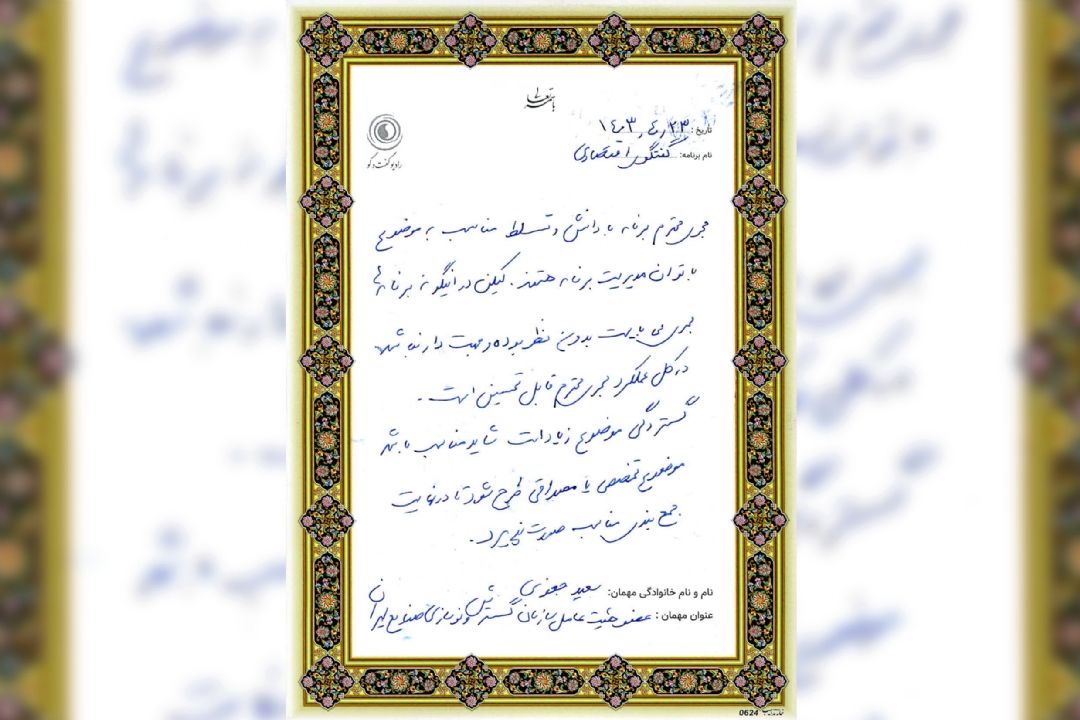 باسمه تعالی
رادیو گفت و گو
تاریخ: ۱۴۰۳٫۴٫۲۳
نام برنامه: گفتگوی اقتصادی
مجری محترم برنامه با دانش و تسلط مناسب به موضوع
با توان مدیریت برنامه هستند. لیکن در اینگونه برنامه‌ها
مجری می بایست بدون نظر بوده و جهت دار نباشد
در کل عملکرد مجری محترم قابل تحسین است.
گستردگی موضوع زیاد است شاید مناسب باشد
موضوع تخصصی یا مصداقی طرح شود تا در نهایت
جمع بندی مناسب صورت پذیرد.
نام و نام خانوادگی مهمان: سعید جعفری
عنوان مهمان: عضو هیئت عامل سازمان گسترش و نوسازی صنایع ایران
0624